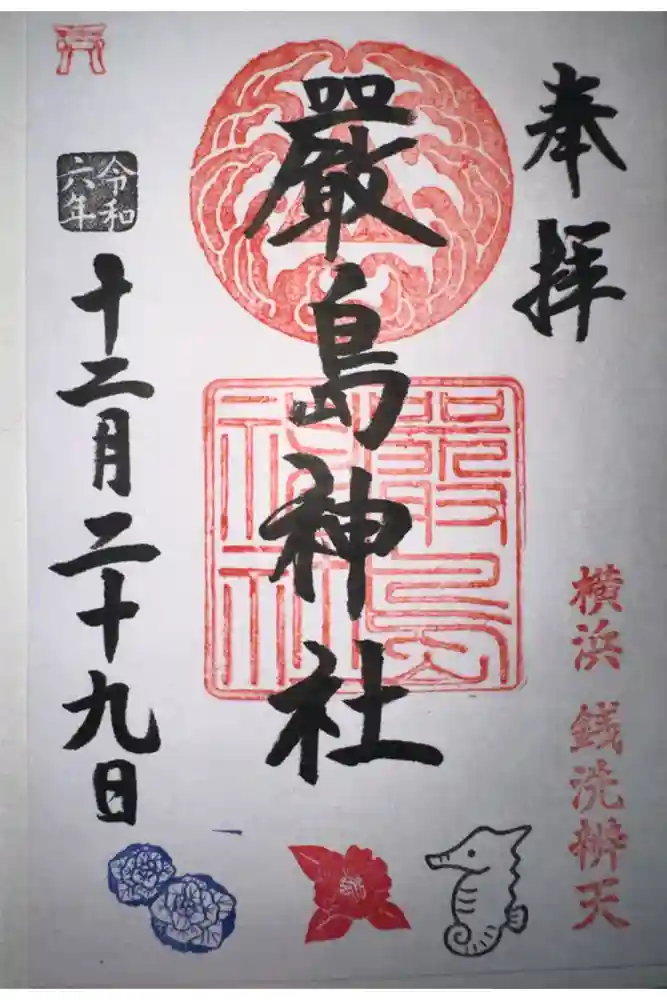 奉拝
横浜 銭洗辨天
嚴島神社
嚴島
神社
令和
六年
十二月二十九日